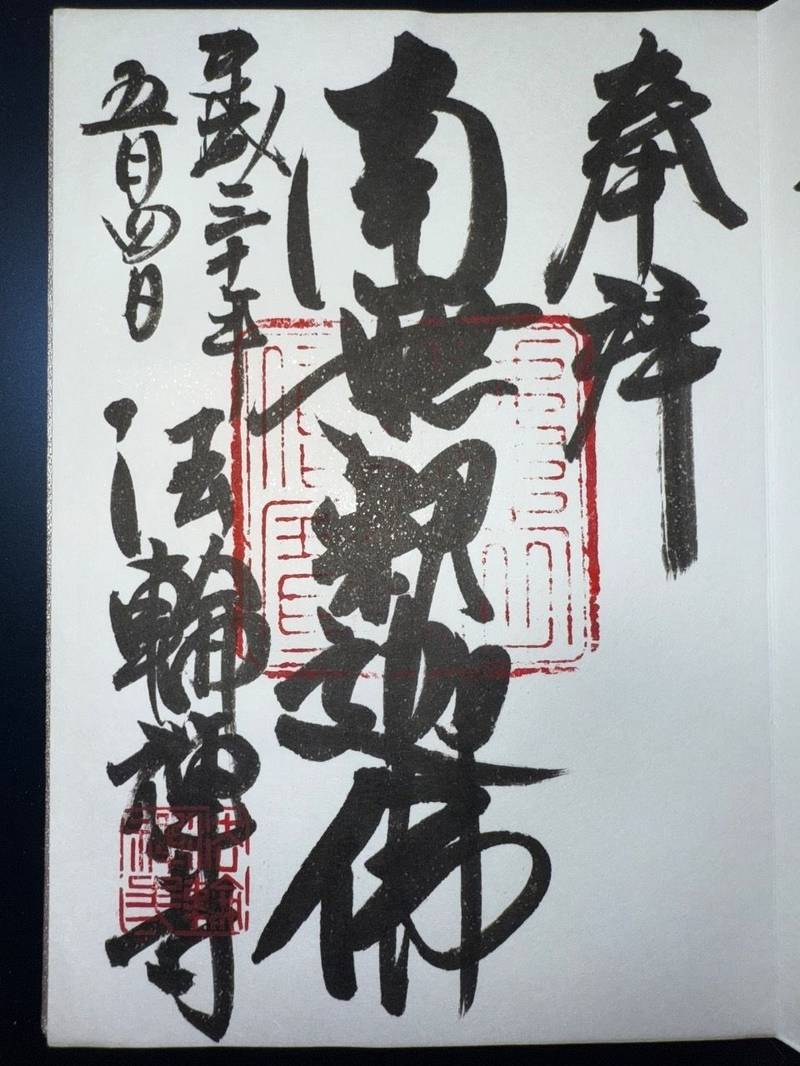 奉拝
南無釈迦佛
平成三十年
五月四日
法輪禅寺